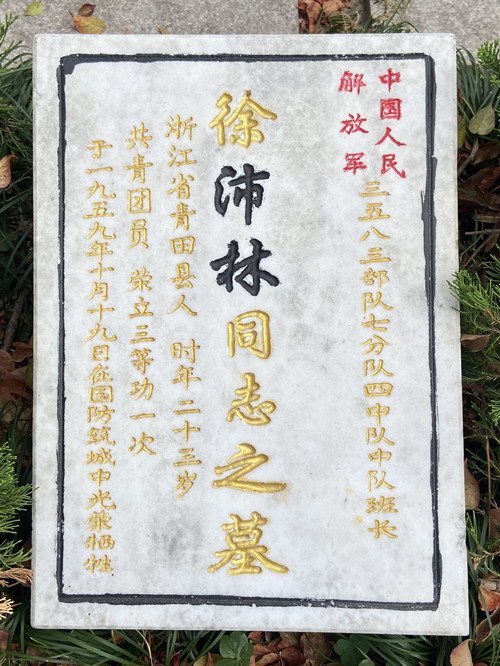 中国人民
解放军
三五八三部队七分队四中队中队班长
徐沛林同志之墓
浙江省青田县人 时年二十三岁
共青团员 荣立三等功一次
于一九五九年十月十九日在国防筑城中光荣牺牲